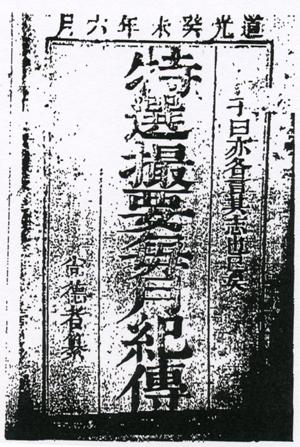 道光癸未年六月
子曰亦各言其志也已矣
特選撮要每月紀傳
尚德者纂